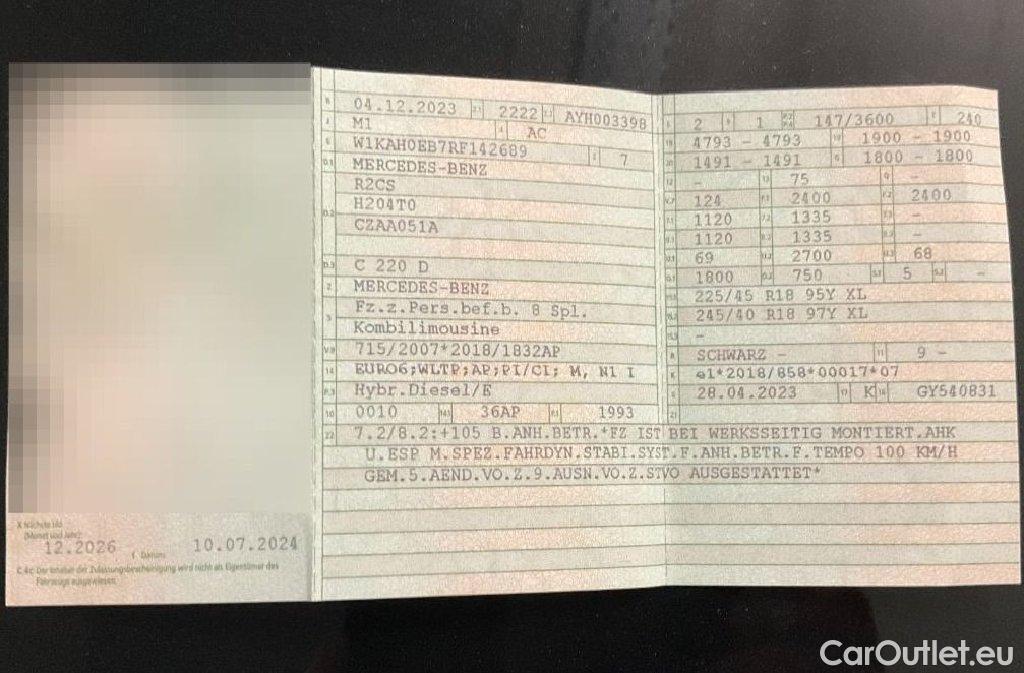 04.12.2023 2222 AYH003398
M1 AC
W1KAH0EB7RF142689 7
MERCEDES-BENZ
R2CS
H204T0
CZAA051A
C 220 D
MERCEDES-BENZ
Fz.z.Pers.bef.b. 8 Spl.
Kombilimousine
715/2007*2018/1832AP
EURO6;WLTP;AP;PI/CI; M, N1 I
Hybr.Diesel/E
0010 36AP 1993
2 1 147/3600 240
4793 - 4793 1900 - 1900
1491 - 1491 1800 - 1800
- 75 -
124 2400 2400
1120 1335 -
1120 1335 -
69 2700 68
1800 750 5 -
225/45 R18 95Y XL
245/40 R18 97Y XL
-
SCHWARZ - 9 -
e1*2018/858*00017*07
28.04.2023 K GY540831
22 7.2/8.2:+105 B.ANH.BETR.*FZ IST BEI WERKSSEITIG MONTIERT.AHK
U.ESP M.SPEZ.FAHRDYN.STABI.SYST.F.ANH.BETR.F.TEMPO 100 KM/H
GEM.5.AEND.VO.Z.9.AUSN.VO.Z.STVO AUSGESTATTET*
X Nächste HU
(Monat und Jahr)
12.2026 I Datum: 10.07.2024
C.4c: Der Inhaber der Zulassungsbescheinigung wird nicht als Eigentümer des
Fahrzeugs ausgewiesen.
CarOutlet.eu